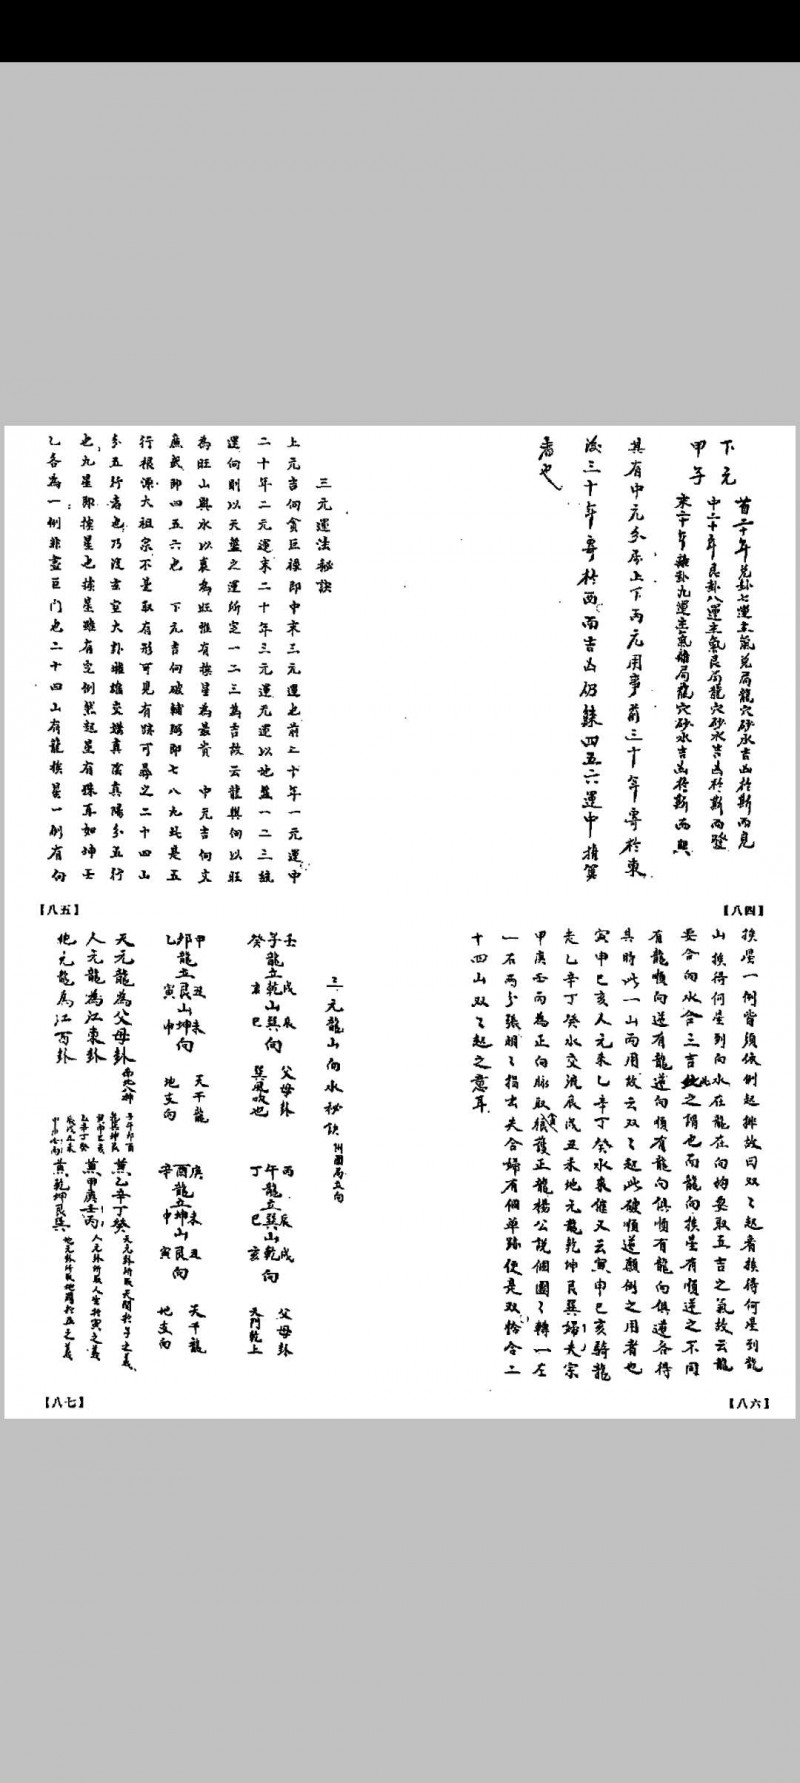 下元
甲子
首二十年兌卦七運主氣兌局龍穴砂水吉凶於斯而見
中二十年艮卦八運主氣艮局龍穴砂水吉凶於斯而證
末二十年離卦九運主氣離局龍穴砂水吉凶於斯而興
其有中元分屬上下丙元用事前三十年寄於東
後三十年寄於西而吉凶仍錄四五六運中推算
者也
【八四】
三元運法秘訣
上元吉向貪巨祿即中末三元運也前二十年一元運中
二十年二元運末二十年三元運元運以地盤一二三故
運向則以天盤之運所定一二三為吉故云龍與向以旺
為旺山與水以衰為旺惟有挨星為最貴 中元吉向文
廉武即四五六也 下元吉向破輔弼即七八九此是五
行根源大祖宗不是取有形可見有跡可尋之二十四山
分五行者也乃從玄空大卦雌雄交媾真陰真陽分五行
也九星即挨星也挨星雖有定例然起星有殊耳如坤壬
乙各為一例非盡巨門也二十四山有龍挨星一例有向
【八五】
挨星一例皆須依例起排故曰双々起者挨得何星到龍
山挨得何星到向水在龍在向均要取五吉之氣故云龍
要合向水合三吉此之謂也而龍向挨星有順逆之不同
有龍順向逆有龍逆向順有龍向俱順有龍向俱逆各得
其時此一山兩用故云双々起此破順逆顛倒之用者也
寅申巳亥人元來乙辛丁癸水來催又云寅申巳亥騎龍
走乙辛丁癸水交流辰戌丑未地元龍乾坤艮巽婦夫宗
甲庚壬丙為正向脉取貪護正龍楊公說個團々轉一左
一右兩分張明々指出夫合婦有個單踪便是双恰合二
十四山双々起之意耳
【八六】
三元龍山向水秘訣 附圖局立向
壬子癸 龍立 戌乾亥 山 辰巽巳 向
父母卦
巽風吹也
丙午丁 龍立 辰巽巳 山 戌乾亥 向
父母卦
天門乾上
甲卯乙 龍立 丑艮寅 山 未坤申 向
天干龍
地支向
庚酉辛 龍立 未坤申 山 丑艮寅 向
天干龍
地支向
天元龍為父母卦 南北八神 子午卯酉乾巽坤艮 兼乙辛丁癸 天元卦所屬天開於子之義
人元龍為江東卦 寅申巳亥乙辛丁癸 兼甲庚壬丙 人元卦所屬人生於寅之義
地元龍為江西卦 辰戌丑未甲庚壬丙 兼乾坤艮巽 地元卦所屬地闢於丑之義
【八七】